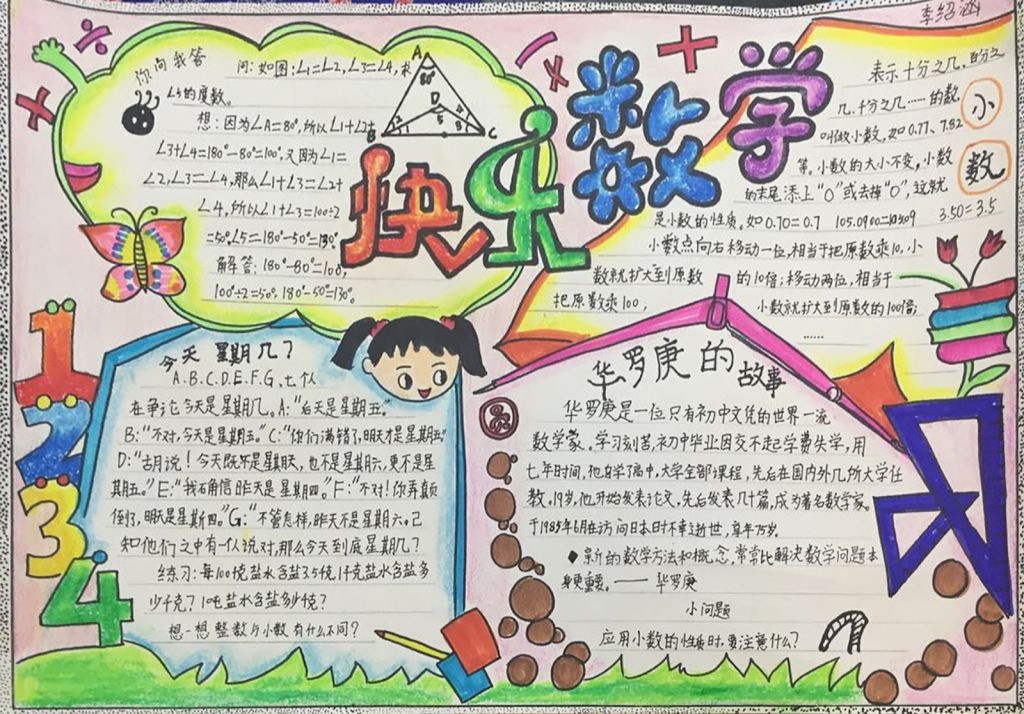 李绍涵
快乐数学
你问我答
问:如图:∠1=∠2,∠3=∠4,求
∠5的度数。
想:因为∠A=80°,所以∠1+∠2+
∠3+∠4=180°-80°=100°,又因为∠1=
∠2,∠3=∠4,那么∠1+∠3=∠2+
∠4,所以∠1+∠3=100÷2
=50°,∠5=180°-50°=130°。
解答:180°-80°=100°,
100°÷2=50°,180°-50°=130°。
A
80°
D
B
C
小数
表示十分之几、百分之
几、千分之几……的数
叫做小数,如0.77、7.82
等。小数的大小不变,小数
的末尾添上“0”或去掉“0”,这就
是小数的性质。如0.70=0.7
3.50=3.5
小数点向右移动一位,相当于把原数乘10,小
数就扩大到原数 的10倍;移动两位,相当于
把原数乘100, 小数就扩大到原数的100倍;
……
1
2
3
4
今天星期几?
A.B.C.D.E.F.G.七个人
在争论今天是星期几。A:“后天是星期五。”
B:“不对,今天是星期五。”C:“你们满错了,明天才是星期五”
D:“古月说!今天既不是星期天,也不是星期六,更不是星
期五。”E:“我石角信昨天是星期四。”F:“不对!你弄颠
倒了,明天是星斯四。”G:“不管怎样,昨天不是星期六。”
知他们之中有一个人说对,那么今天到底星期几?
练习:每100克盐水含盐3.5克,1千克盐水含盐多
少千克?1吨盐水含盐多少千克?
想一想整数与小数有什么不同?
华罗庚的故事
圆
华罗庚是一位只有初中文凭的世界一流
数学家。学习刻苦,初中毕业因交不起学费失学,用
七年时间,他自学了高中,大学全部课程,先后在国内外几所大学任
教,19岁,他开始发表论文,先后发表几十篇,成为著名数学家。
于1985年6月在访问日本时不幸逝世,享年75岁。
◆新的数学方法和概念,常常比解决数学问题本
身更重要。——华罗庚
小问题
应用小数的性质时,要注意什么?